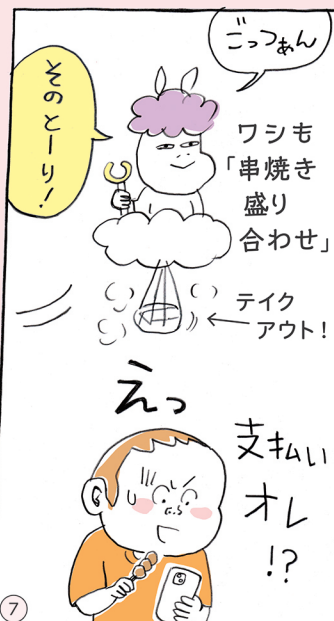 ごっつぁん
そのとーり!
ワシも
「串焼き
盛り
合わせ」
テイク
アウト!
えっ
支払い
オレ
!?
7